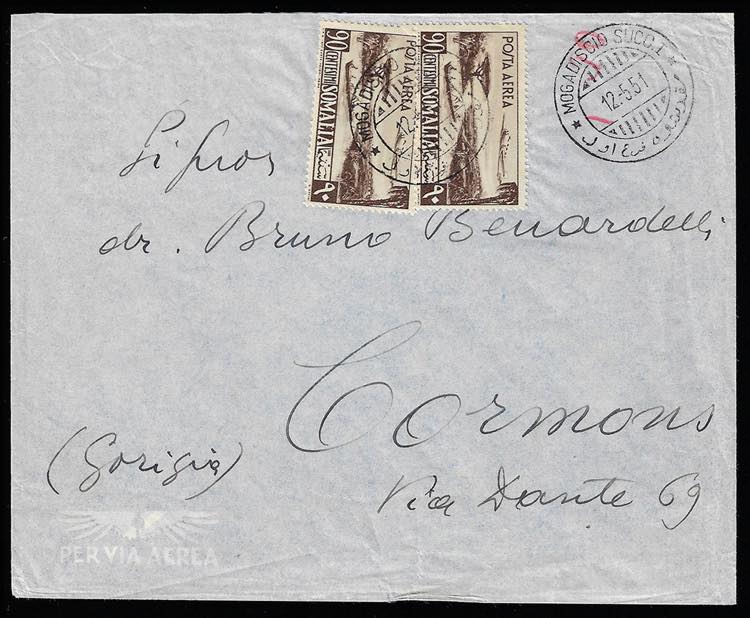 90 CENTESIMI SOMALIA ٩٠
POSTA AEREA
90 CENTESIMI SOMALIA ٩٠
POSTA AEREA
MOGADISCIO
12-
MOGADISCIO SUCC. 1
12-5.51
dr. Bruno Benardelli
Cormons
(Gorizia)
Via Dante 69
PER VIA AEREA